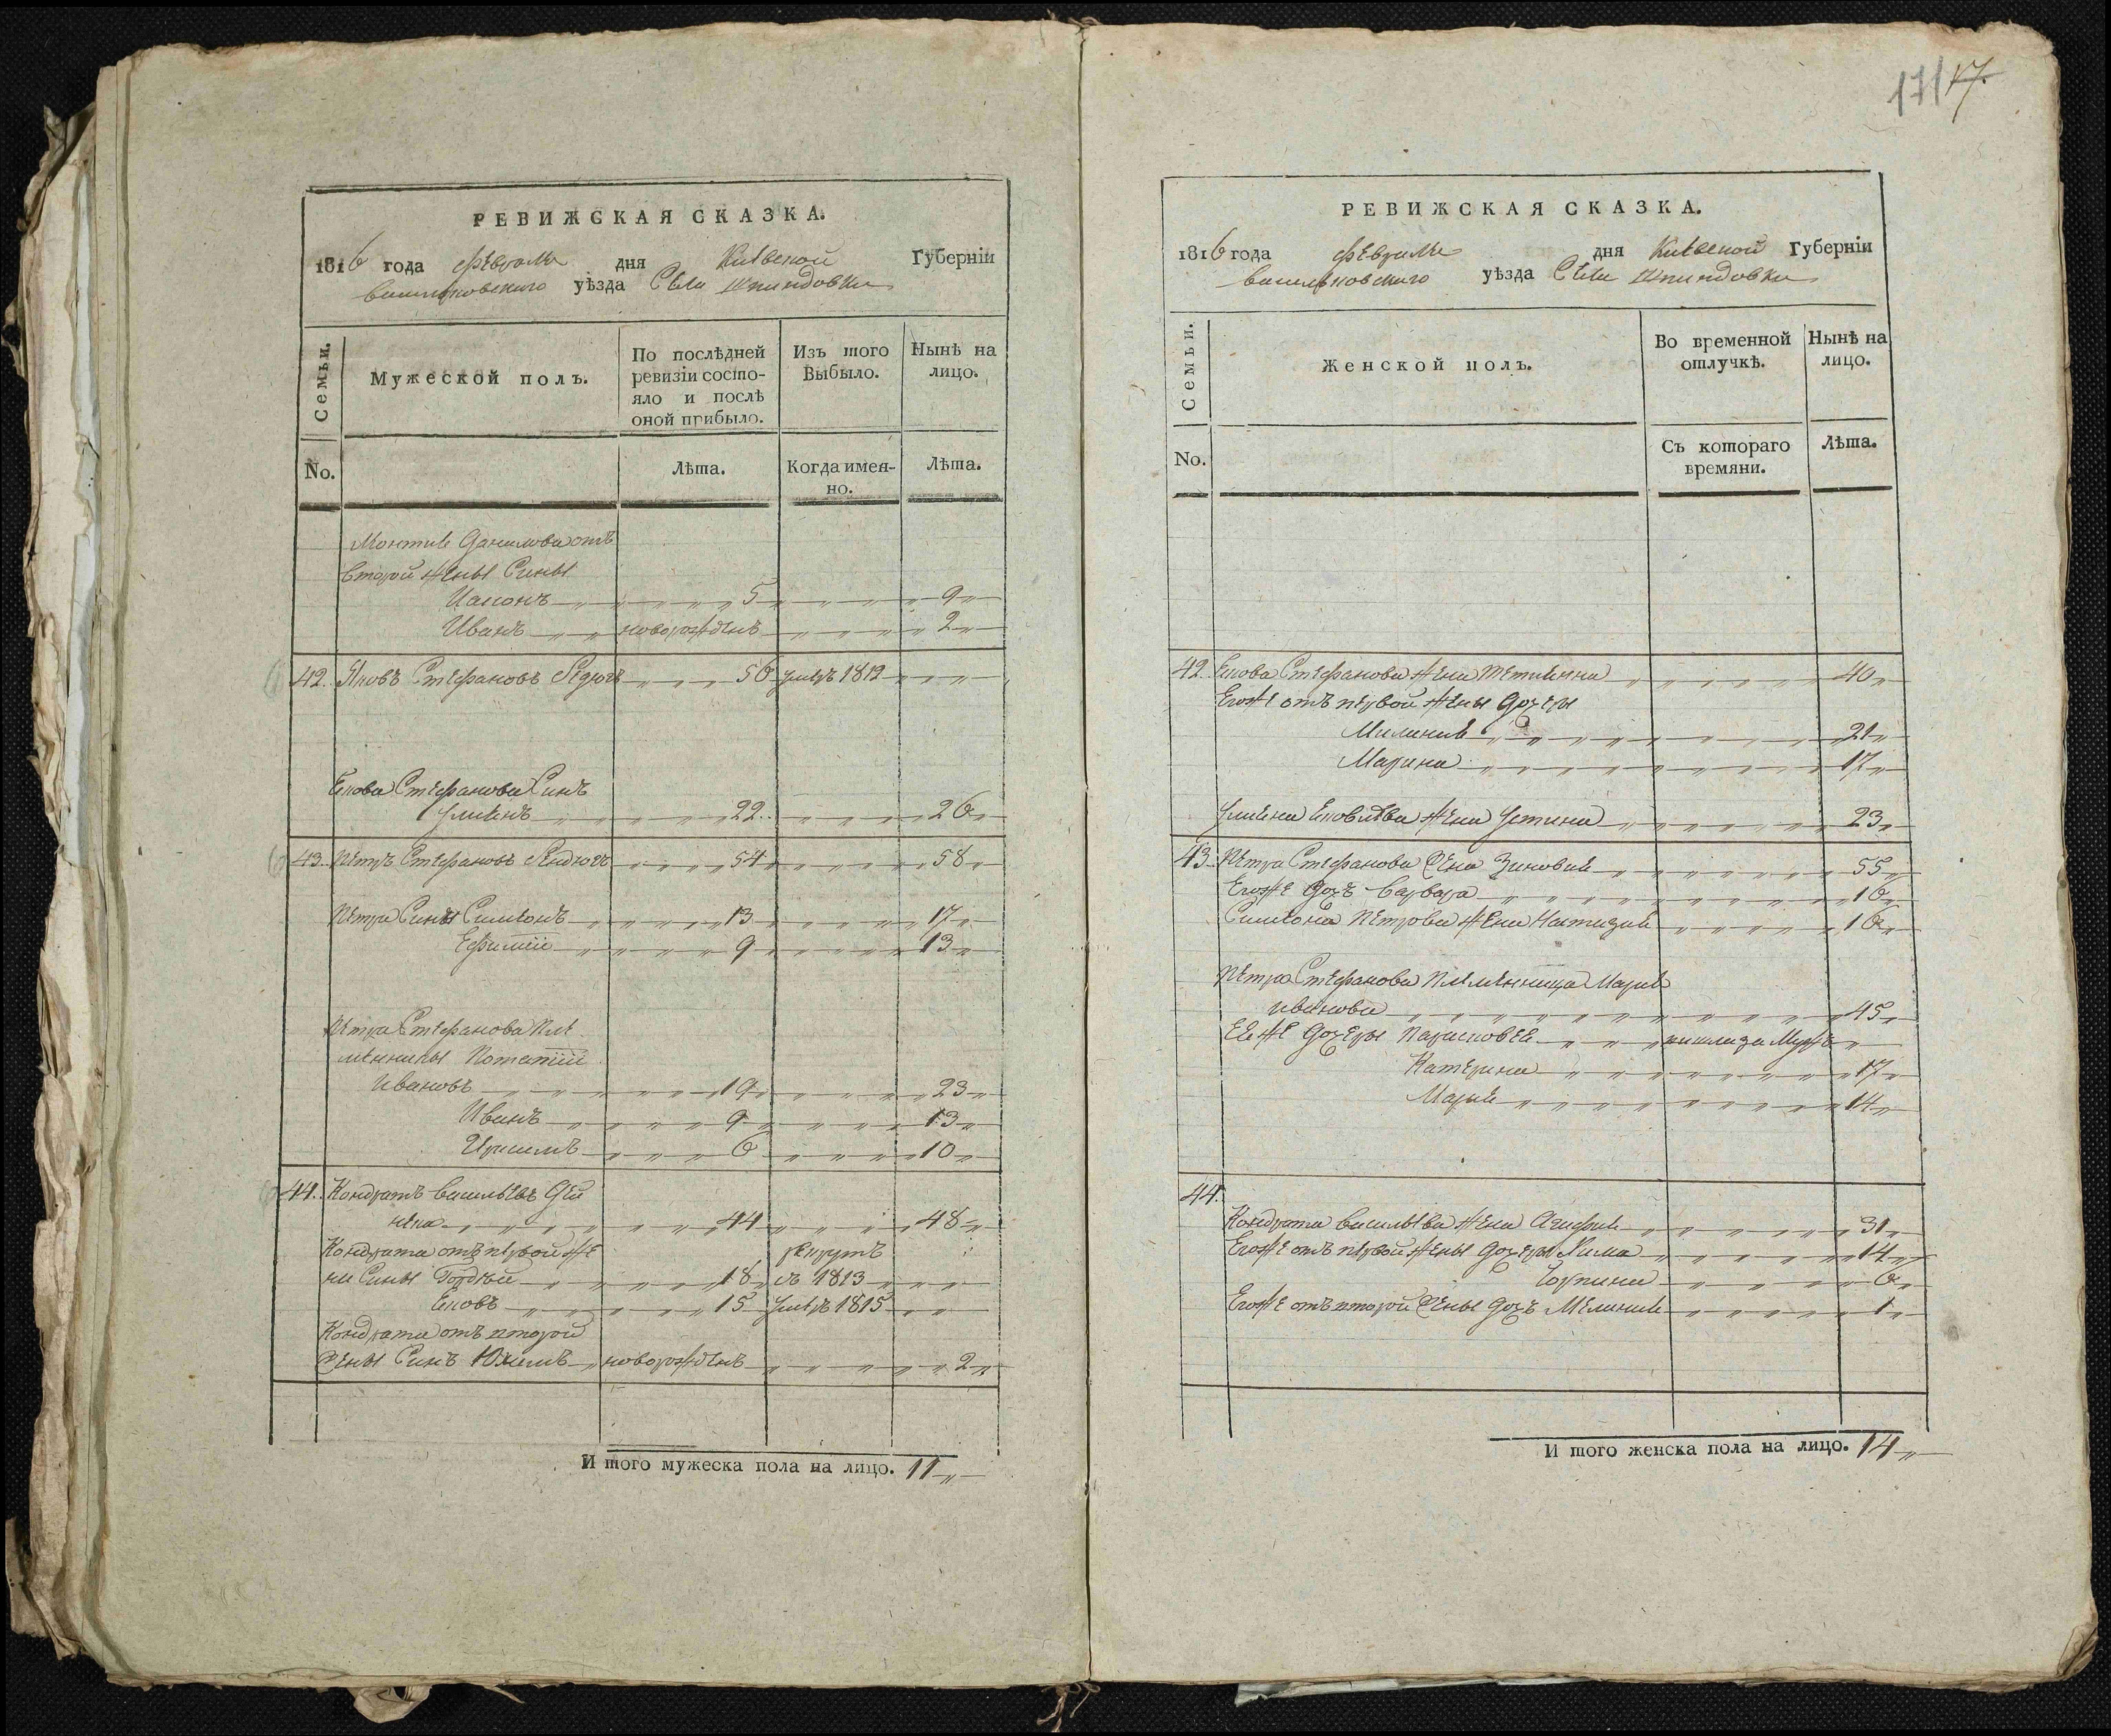 171 17.
РЕВИЖСКАЯ СКАЗКА.
1816 года февраля дня Киевской Губернiи
васильковского уѣзда Села Шпиндовки
Семьи.
Мужеской полъ.
По послѣдней ревизiи состо-
яло и послѣ
оной прибыло.
Изъ того
Выбыло.
Нынѣ на
лицо.
No.
Лѣта.
Когда имен-
но.
Лѣта.
Данилова отъ
второй жены Сины
5 9
Иванъ новорожденъ 2
42. Яковъ Стефановъ 56 умеръ 1812
Екова Стефанова Синъ
22 26
43. Петръ Стефановъ 54 58
Петра Сины Симионъ 13 17
Ефимiй 9 13
Петра Стефанова пле
мянники Потапiй
Ивановъ 19 23
Иванъ 9 13
6 10
44. Кондратъ васильевъ Дей
нека 44 48
Кондрата отъ первой же
ни Сины Гордѣй 18 рекрутъ
въ 1813
Ековъ 15 умеръ 1815
Кондрата отъ второй
жены Синъ Юхимъ новорожденъ 2
И того мужеска пола на лицо. 11
РЕВИЖСКАЯ СКАЗКА.
1816 года февраля дня Киевской Губернiи
васильковского уѣзда Села Шпиндовки
Семьи.
Женской полъ.
Во временной
отлучкѣ.
Нынѣ на
лицо.
No.
Съ котораго
времяни.
Лѣта.
42. Екова Стефанова жена 40
Егоже отъ первой жены дочеры
21
Марина 17
жена Устина 23
43. Петра Стефанова жена Зиновия 55
Егоже дочь варвара 16
Симиона Петрова жена 16
Петра Стефанова племянница Мария
иванова 45
Ее же дочеры вишла за мужъ
Катерина 17
Мария 14
44.
Кондрата васильева жена Агафия 31
Егоже отъ первой жены дочеры Хима 14
6
Егоже отъ второй жены дочь Мелания 1
И того женска пола на лицо. 14